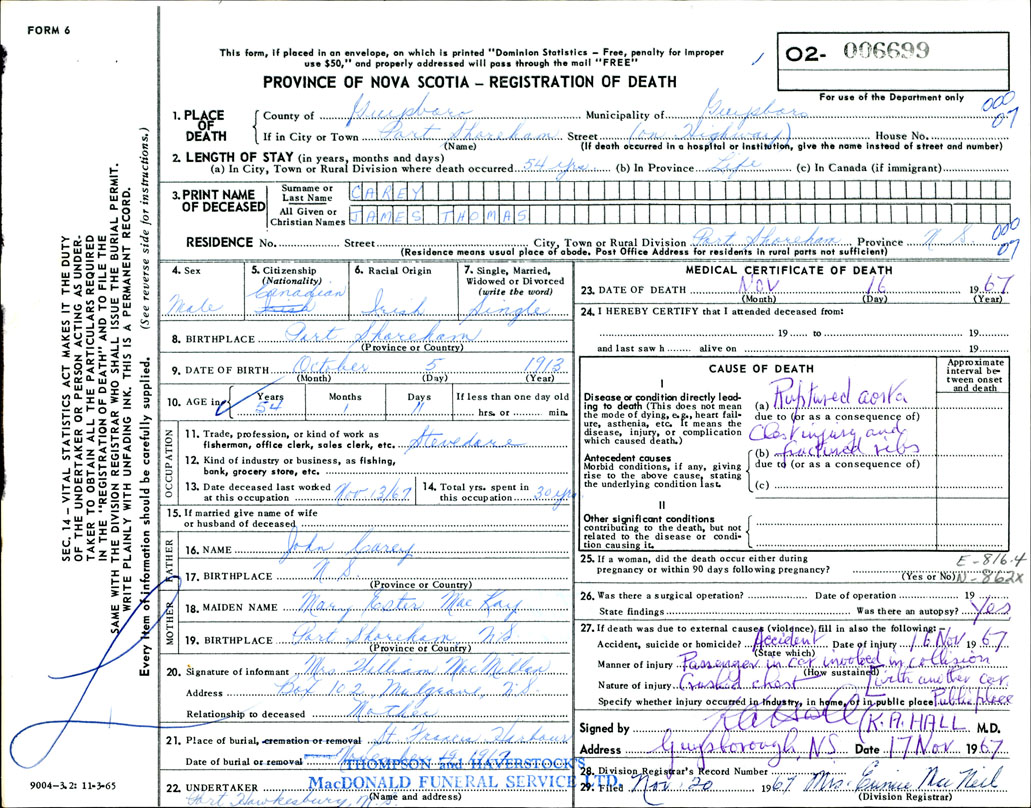 FORM 6
This form, if placed in an envelope, on which is printed "Dominion Statistics – Free, penalty for improper
use $50," and properly addressed will pass through the mail "FREE"
PROVINCE OF NOVA SCOTIA – REGISTRATION OF DEATH
02- 006699
For use of the Department only
000
07
SEC. 14 – VITAL STATISTICS ACT MAKES IT THE DUTY
OF THE UNDERTAKER OR PERSON ACTING AS UNDER-
TAKER TO OBTAIN ALL THE PARTICULARS REQUIRED
IN THE "REGISTRATION OF DEATH" AND TO FILE THE
SAME WITH THE DIVISION REGISTRAR WHO SHALL ISSUE THE BURIAL PERMIT.
WRITE PLAINLY WITH UNFADING INK. THIS IS A PERMANENT RECORD.
Every item of information should be carefully supplied. (See reverse side for instructions.)
1. PLACE OF DEATH
County of Guysboro Municipality of Guysboro
If in City or Town Port Shoreham Street (on Highway) House No.
(Name) (If death occurred in a hospital or institution, give the name instead of street and number)
2. LENGTH OF STAY (in years, months and days)
(a) In City, Town or Rural Division where death occurred 54 yrs (b) In Province Life (c) In Canada (if immigrant)
3. PRINT NAME OF DECEASED
Surname or Last Name CAREY
All Given or Christian Names JAMES THOMAS
RESIDENCE No. Street City, Town or Rural Division Port Shoreham Province N S
000
07
(Residence means usual place of abode. Post Office Address for residents in rural parts not sufficient)
4. Sex
Male
5. Citizenship
(Nationality)
Canadian
Irish
6. Racial Origin
Irish
7. Single, Married,
Widowed or Divorced
(write the word)
Single
8. BIRTHPLACE Port Shoreham
(Province or Country)
9. DATE OF BIRTH October 5 1913
(Month) (Day) (Year)
10. AGE in: Years Months Days If less than one day old
54 1 11 hrs. or min.
OCCUPATION
11. Trade, profession, or kind of work as
fisherman, office clerk, sales clerk, etc. Stevedore
12. Kind of industry or business, as fishing,
bank, grocery store, etc.
13. Date deceased last worked
at this occupation Nov 13/67
14. Total yrs. spent in
this occupation 30 yrs
15. If married give name of wife
or husband of deceased
FATHER
16. NAME John Carey
17. BIRTHPLACE N S
(Province or Country)
MOTHER
18. MAIDEN NAME Mary Ester Mac Kay
19. BIRTHPLACE Port Shoreham NS
(Province or Country)
20. Signature of informant Mrs Mac Mullen
Address Box 102 Mulgrave, N.S.
Relationship to deceased Mother
21. Place of burial, cremation or removal St Francis Harbour
Date of burial or removal 1967
22. UNDERTAKER
THOMPSON and HAVERSTOCK'S
MacDONALD FUNERAL SERVICE LTD
Port Hawkesbury, N.S.
(Name and address)
9004-3.2: 11-3-65
MEDICAL CERTIFICATE OF DEATH
23. DATE OF DEATH Nov 16 1967
(Month) (Day) (Year)
24. I HEREBY CERTIFY that I attended deceased from:
19 to 19
and last saw h alive on 19
CAUSE OF DEATH
Approximate
interval be-
tween onset
and death
I
Disease or condition directly lead-
ing to death (This does not mean
the mode of dying, e.g., heart fail-
ure, asthenia, etc. It means the
disease, injury, or complication
which caused death.)
(a) Ruptured aorta
due to (or as a consequence of)
Chest injury and
(b) fractured ribs
due to (or as a consequence of)
(c)
Antecedent causes
Morbid conditions, if any, giving
rise to the above cause, stating
the underlying condition last.
II
Other significant conditions
contributing to the death, but not
related to the disease or condi-
tion causing it.
25. If a woman, did the death occur either during
pregnancy or within 90 days following pregnancy?
(Yes or No)
E-816.4
N-862X
26. Was there a surgical operation? Date of operation 19
State findings Was there an autopsy? Yes
27. If death was due to external causes (violence) fill in also the following:
Accident, suicide or homicide? Accident Date of injury 16 Nov 1967
(State which)
Manner of injury Passenger in car involved in collision
(How sustained)
with another car
Nature of injury Crushed chest
Specify whether injury occurred in industry, in home, or in public place Public place
Signed by K A Hall (K. A. HALL M.D.
Address Guysborough, NS. Date 17 Nov 1967
28. Division Registrar's Record Number
29. Filed Nov. 20 1967 Mrs. Eunice Mac Neil
(Division Registrar)